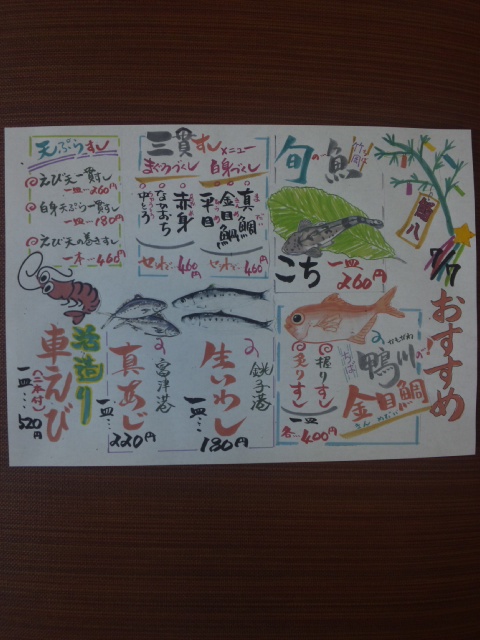 おすすめ
7/7
鮨八
旬の魚
竹岡
こち
一皿
260円
ちば
かもがわ
鴨川の
金目鯛
きんめだい
握りすし
炙りすし
一皿
各…400円
三貫すしメニュー
白身づくし
真鯛
まだい
金目鯛
平目
セットで…460円
まぐろづくし
赤身
なかおち
中とろ
セットで…460円
天ぷらすし
えび天一貫すし
一皿…260円
白身天ぷら一貫すし
一皿…180円
えび天の巻きすし
一本…460円
銚子港の
生いわし
一皿…
180円
富津港の
真あじ
一皿…
220円
活造り
車えび
(二本付)
一皿…
520円